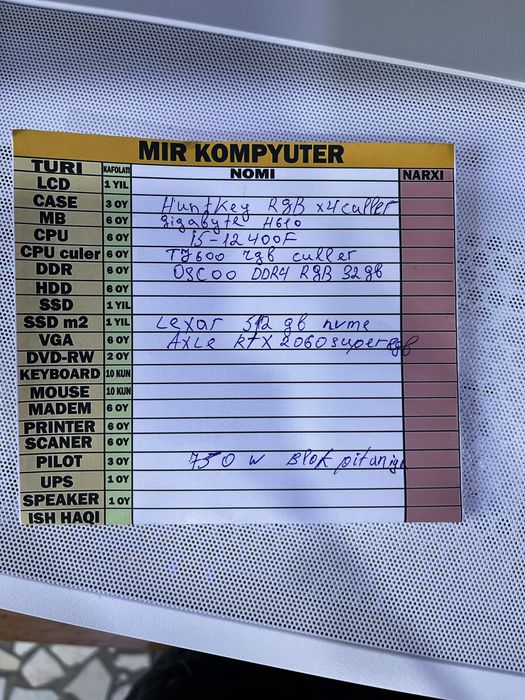 MIR KOMPYUTER
TURI KAFOLATI NOMI NARXI
LCD 1 YIL
CASE 3 OY Huntkey RGB x4 culler
MB 6 OY gigabyte H610
CPU 6 OY i5-12400F
CPU culer 6 OY TY600 rgb culler
DDR 6 OY OSCOO DDR4 RGB 32gb
HDD 6 OY
SSD 1 YIL
SSD m2 1 YIL Lexar 512 gb nvme
VGA 6 OY AXLE RTX 2060 super 8gb
DVD-RW 2 OY
KEYBOARD 10 KUN
MOUSE 10 KUN
MADEM 6 OY
PRINTER 6 OY
SCANER 6 OY
PILOT 3 OY 750 W Blok pitaniya
UPS 1 OY
SPEAKER 1 OY
ISH HAQI